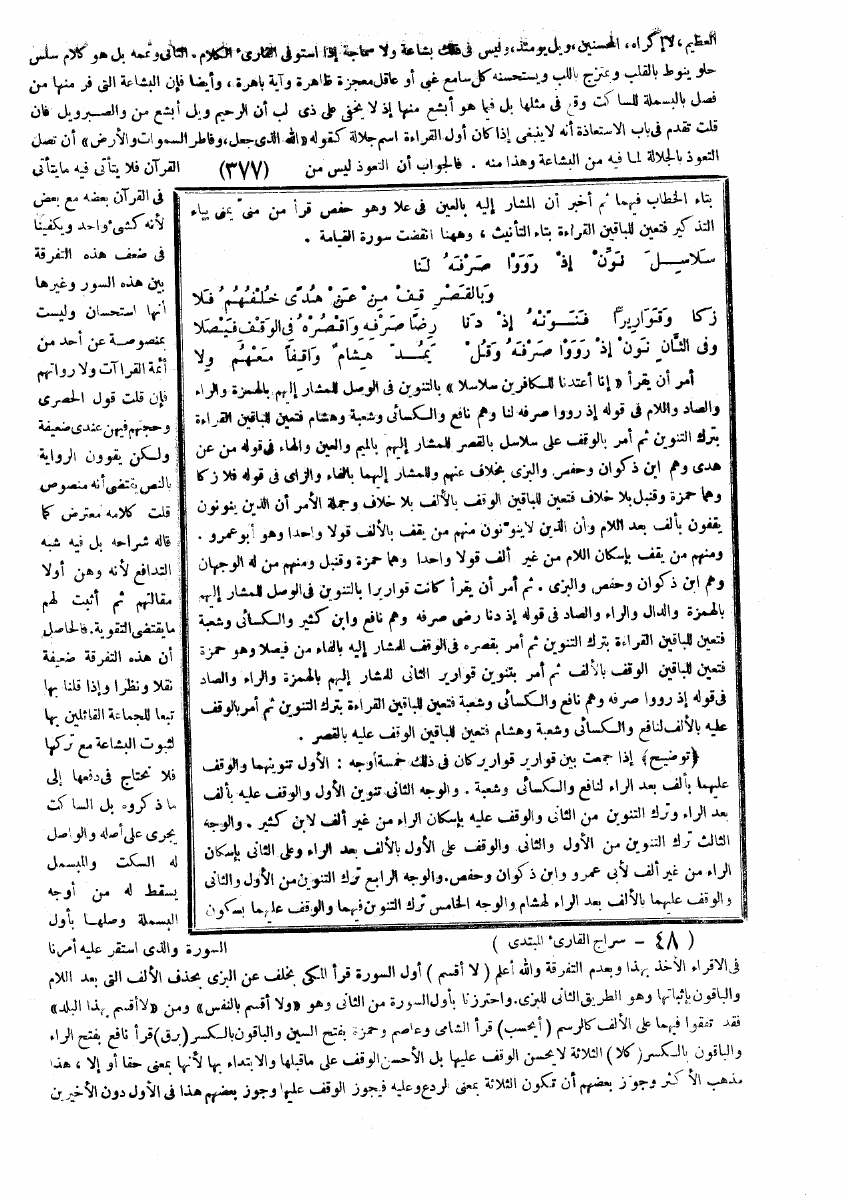 العظيم، لا إكراه، المحسنين، ويل يومئذ، وليس في ذلك بشاعة ولا سماجة إذا استوفى القارىء الكلام. الثاني وتممه بل هو كلام سلس
حلو ينوط بالقلب ويمتزج باللب ويستحسنه كل سامع غبي أو عاقل معجزة ظاهرة وآية باهرة، وأيضا فإن البشاعة التي فر منها من
فصل بالبسملة للساكت وقع في مثلها بل فيما هو أبشع منها إذ لا يخفى على ذى لب أن الرحيم ويل أبشع من والصبر ويل فان
قلت تقدم في باب الاستعاذة أنه لا ينبغي إذا كان أول القراءة اسم جلالة كقوله «الله الذى جعل، وفاطر السموات والأرض» أن تصل
التعوذ بالجلالة لما فيه من البشاعة وهذا منه . فالجواب أن التعوذ ليس من (٣٧٧) القرآن فلا يتأتى فيه ما يتأتى
في القرآن بعضه مع بعض
لأنه كشىء واحد ويكفينا
في ضعف هذه التفرقة
بين هذه السور وغيرها
أنها استحسان وليست
بمنصوصة عن أحد من
أئمة القراآت ولا رواتهم
فإن قلت قول الحصرى
وحجتهم فيهن عندى ضعيفة
ولكن يقوون الرواية
بالنص يقتضى أنه منصوص
قلت كلامه معترض كما
قاله شراحه بل فيه شبه
التدافع لأنه وهن أولا
مقالتهم ثم أثبت لهم
ما يقتضى التقوية. فالحاصل
أن هذه التفرقة ضعيفة
نقلا ونظرا وإذا قلنا بها
تبعا للجماعة القائلين بها
لثبوت البشاعة مع تركها
فلا تحتاج في دفعها إلى
ما ذكروه بل الساكت
يجرى على أصله والواصل
له السكت والمبسمل
يسقط له من أوجه
البسملة وصلها بأول
السورة والذى استقر عليه أمرنا
بتاء الخطاب فيهما ثم أخبر أن المشار إليه بالعين في علا وهو حفص قرأ من منىّ يمنى بياء
التذكير فتعين للباقين القراءة بتاء التأنيث، وههنا انقضت سورة القيامة .
سلاسِلَ نَوِّنْ إذْ رَوَوْا صَرْفَهُ لَنا
وَبالقَصْرِ قِفْ مِنْ عَنْ هُدًى خُلْفُهُمْ فَلا
زكا وَقَوارِيرًا فَنَوِّنْهُ إذْ دَنا رِضًا صَرْفِهِ وَاقْصُرْهُ في الوَقْفِ فَيْصَلا
وفي الثّانِ نَوِّنْ إذْ رَوَوْا صَرْفَهُ وَقُلْ يَمُدُّ هِشامٌ وَاقِفًا مَعَهُمْ وِلا
أمر أن يقرأ «إنا أعتدنا للكافرين سلاسلا» بالتنوين في الوصل للمشار إليهم بالهمزة والراء
والصاد واللام في قوله إذ رووا صرفه لنا وهم نافع والكسائى وشعبة وهشام فتعين للباقين القراءة
بترك التنوين ثم أمر بالوقف على سلاسل بالقصر للمشار إليهم بالميم والعين والهاء في قوله من عن
هدى وهم ابن ذكوان وحفص والبزى بخلاف عنهم وللمشار إليهما بالفاء والزاى في قوله فلا زكا
وهما حمزة وقنبل بلا خلاف فتعين للباقين الوقف بالألف بلا خلاف وجملة الأمر أن الذين ينونون
يقفون بألف بعد اللام وأن الذين لا ينوّنون منهم من يقف بالألف قولا واحدا وهو أبو عمرو .
ومنهم من يقف بإسكان اللام من غير ألف قولا واحدا وهما حمزة وقنبل ومنهم من له الوجهان
وهم ابن ذكوان وحفص والبزى . ثم أمر أن يقرأ كانت قواريرا بالتنوين في الوصل للمشار إليهم
بالهمزة والدال والراء والصاد في قوله إذ دنا رضى صرفه وهم نافع وابن كثير والكسائى وشعبة
فتعين للباقين القراءة بترك التنوين ثم أمر بقصره في الوقف للمشار إليه بالفاء من فيصلا وهو حمزة
فتعين للباقين الوقف بالألف ثم أمر بتنوين قوارير الثانى للمشار إليهم بالهمزة والراء والصاد
في قوله إذ رووا صرفه وهم نافع والكسائى وشعبة فتعين للباقين القراءة بترك التنوين ثم أمر بالوقف
عليه بالألف لنافع والكسائى وشعبة وهشام فتعين للباقين الوقف عليه بالقصر .
(توضيح) إذا جمعت بين قوارير قوارير كان في ذلك خمسة أوجه : الأول تنوينهما والوقف
عليهما بألف بعد الراء لنافع والكسائى وشعبة . والوجه الثانى تنوين الأول والوقف عليه بألف
بعد الراء وترك التنوين من الثانى والوقف عليه بإسكان الراء من غير ألف لابن كثير . والوجه
الثالث ترك التنوين من الأول والثانى والوقف على الأول بالألف بعد الراء وعلى الثانى بإسكان
الراء من غير ألف لأبى عمرو وابن ذكوان وحفص. والوجه الرابع ترك التنوين من الأول والثانى
والوقف عليهما بالألف بعد الراء لهشام والوجه الخامس ترك التنوين فيهما والوقف عليهما بسكون
( ٤٨ – سراج القارىء المبتدى )
في الاقراء الأخذ بهذا وبعدم التفرقة والله أعلم (لا أقسم) أول السورة قرأ المكى بخلف عن البزى بحذف الألف التى بعد اللام
والباقون بإثباتها وهو الطريق الثانى للبزى. واحترزنا بأول السورة من الثانى وهو «ولا أقسم بالنفس» ومن «لا أقسم بهذا البلد»
فقد تفقوا فيهما على الألف كالرسم (أيحسب) قرأ الشامى وعاصم وحمزة بفتح السين والباقون بالكسر (برق) قرأ نافع بفتح الراء
والباقون بالكسر (كلا) الثلاثة لا يحسن الوقف عليها بل الأحسن الوقف على ما قبلها والابتداء بها لأنها بمعنى حقا أو إلا، هذا
مذهب الأكثر وجوّز بعضهم أن تكون الثلاثة بمعنى الردع وعليه فيجوز الوقف عليها وجوز بعضهم هذا في الأول دون الأخيرين